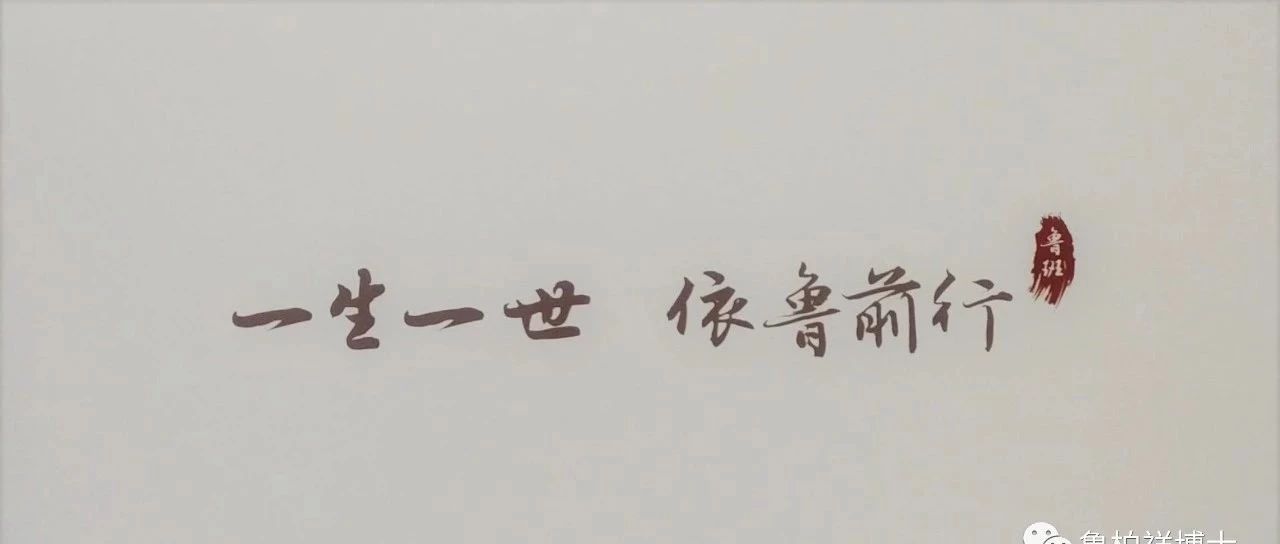 一生一世 依鲁前行
鲁班
鲁柏祥博士